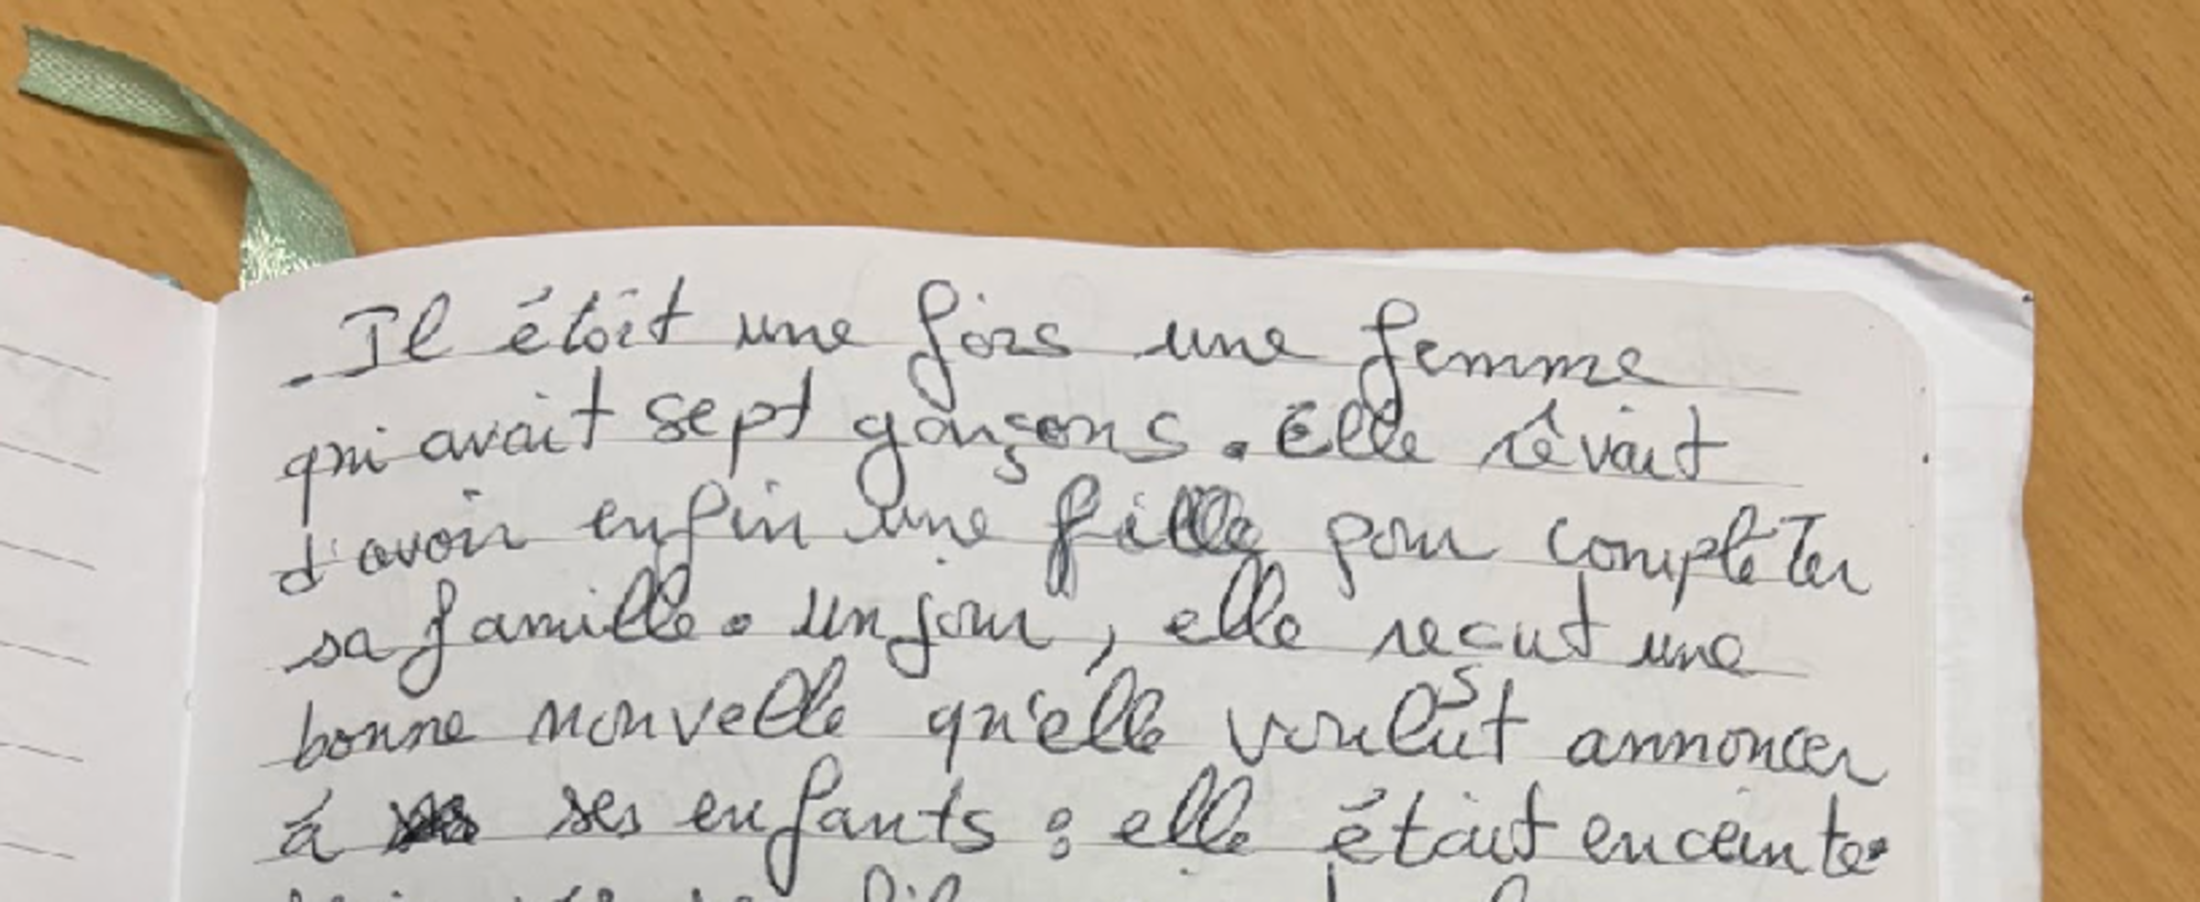 Il était une fois une femme
qui avait sept garçons. Elle rêvait
d'avoir enfin une fille pour compléter
sa famille. Un jour, elle reçut une
bonne nouvelle qu'elle voulut annoncer
à ses enfants : elle était enceinte.